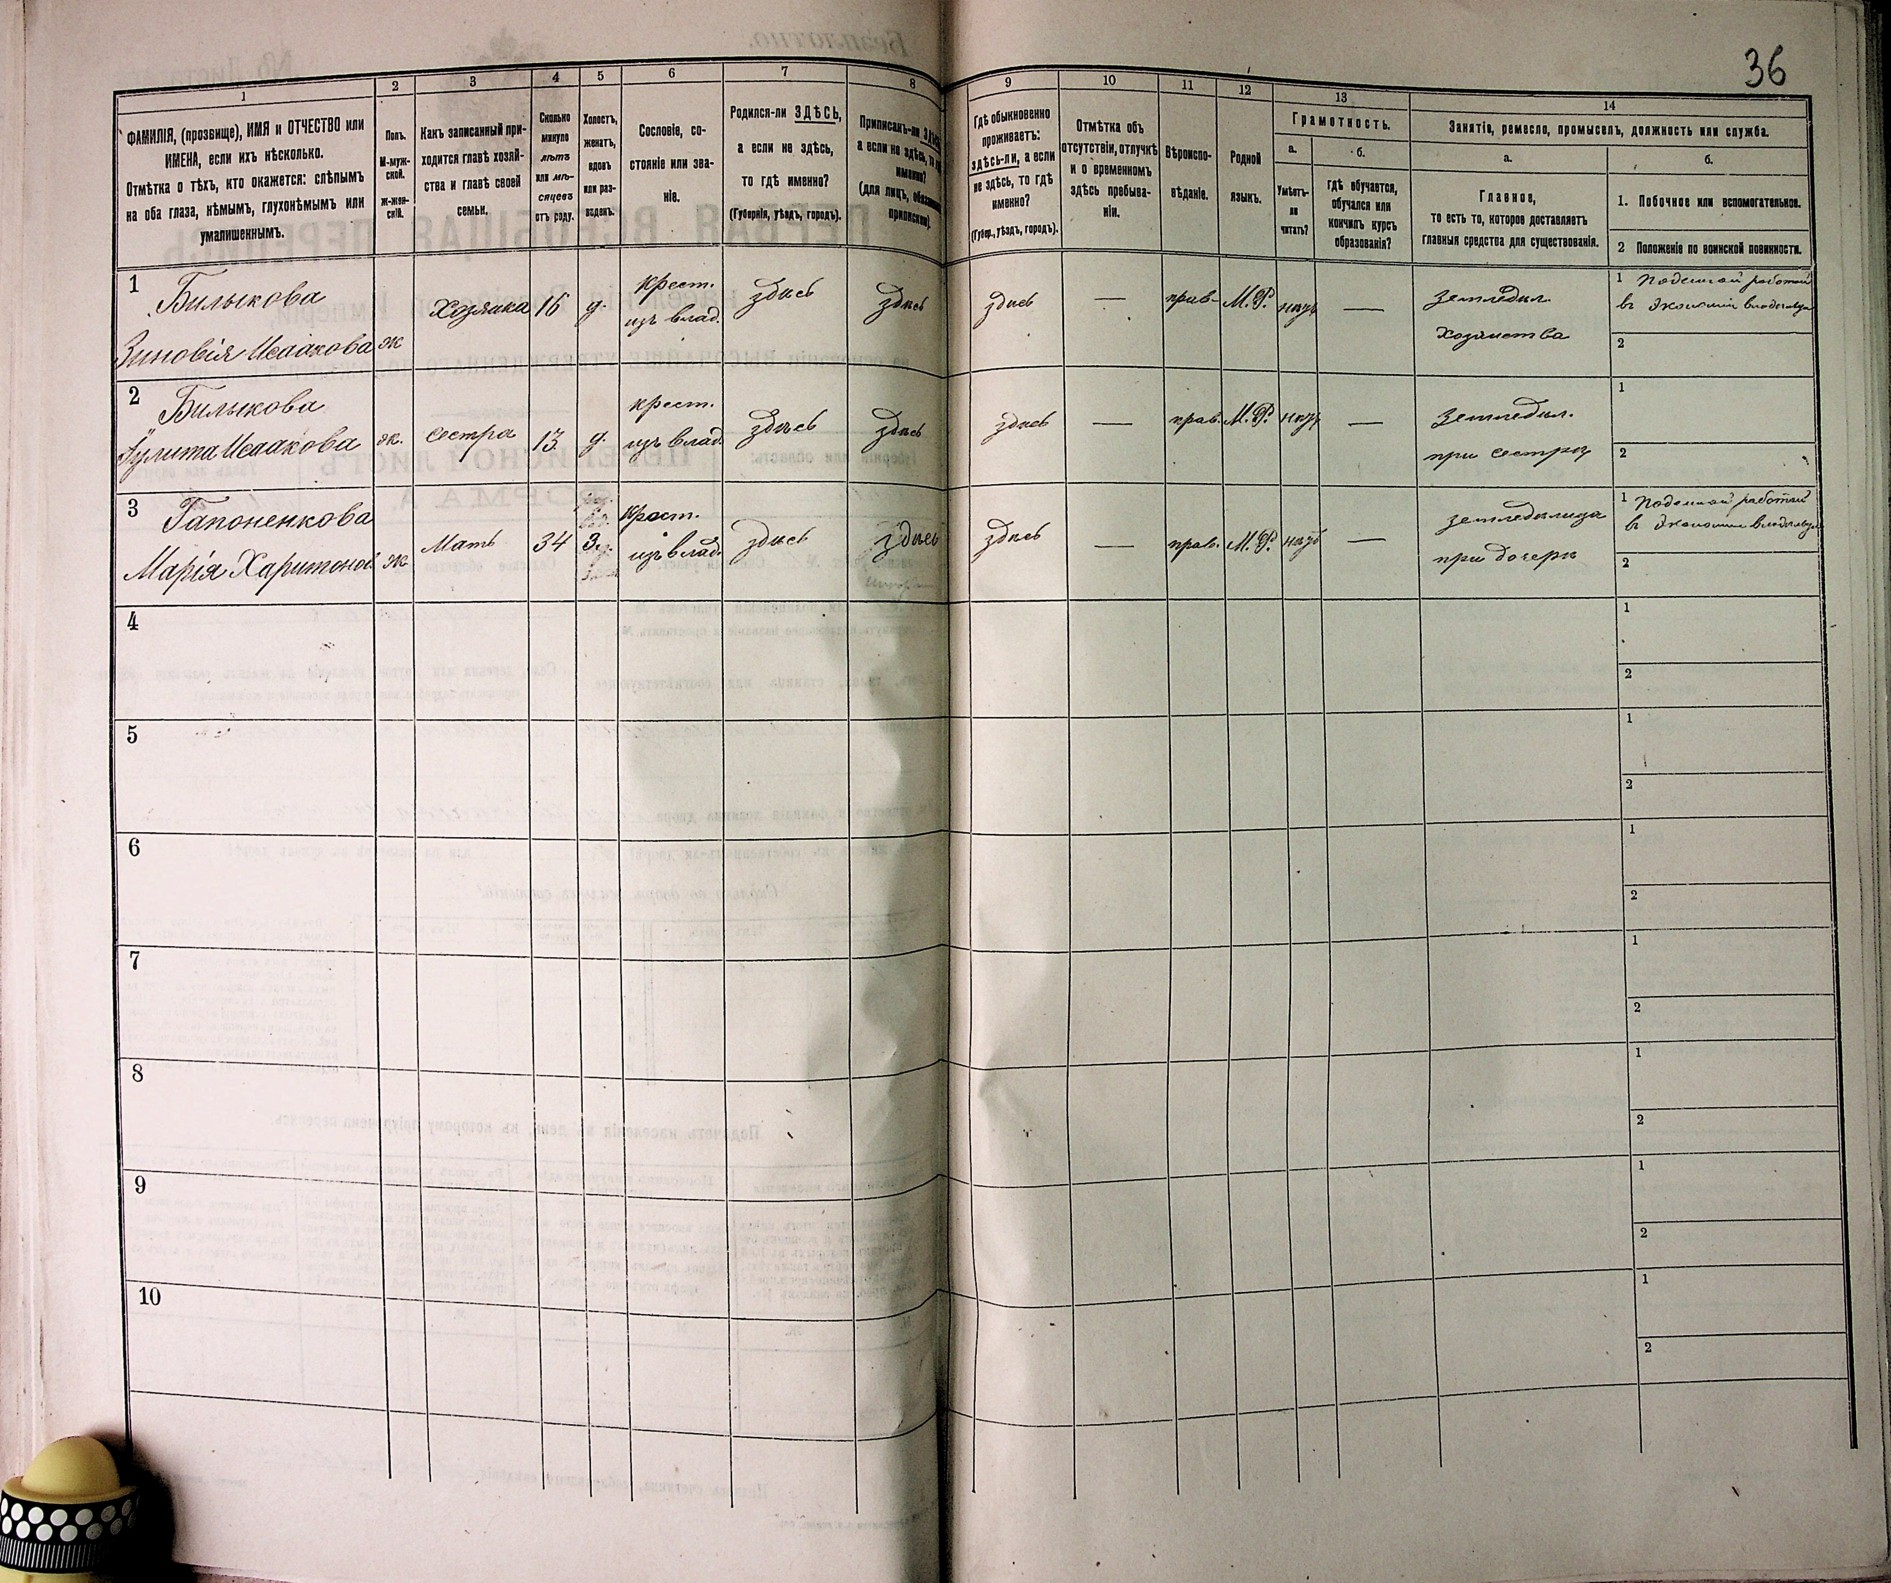 36
1
2
3
4
5
6
7
8
9
10
11
12
13
14
ФАМИЛІЯ, (прозвище), ИМЯ и ОТЧЕСТВО или
ИМЕНА, если ихъ нѣсколько.
Отмѣтка о тѣхъ, кто окажется: слѣпымъ
на оба глаза, нѣмымъ, глухонѣмымъ или
умалишеннымъ.
Полъ.
М-муж-
ской.
Ж-жен-
скій.
Какъ записанный при-
ходится главѣ хозяй-
ства и главѣ своей
семьи.
Сколько
минуло
лѣтъ
или мѣ-
сяцевъ
отъ роду.
Холостъ,
женатъ,
вдовъ
или раз-
веденъ.
Сословіе, со-
стояніе или зва-
ніе.
Родился-ли ЗДѢСЬ,
а если не здѣсь,
то гдѣ именно?
(Губернія, уѣздъ, городъ).
Приписанъ-ли ЗДѢСЬ,
а если не здѣсь, то гдѣ
именно?
(для лицъ, обязанныхъ
припискою).
Гдѣ обыкновенно
проживаетъ:
здѣсь-ли, а если
не здѣсь, то гдѣ
именно?
(Губер., уѣздъ, городъ).
Отмѣтка объ
отсутствіи, отлучкѣ
и о временномъ
здѣсь пребыва-
ніи.
Вѣроиспо-
вѣданіе.
Родной
языкъ.
Грамотность.
а.
Умѣетъ-
ли
читать?
б.
гдѣ обучается,
обучался или
кончилъ курсъ
образованія?
Занятіе, ремесло, промыселъ, должность или служба.
а.
Главное,
то есть то, которое доставляетъ
главныя средства для существованія.
б.
1. Побочное или вспомогательное.
2 Положеніе по воинской повинности.
1
Билыкова
Зиновія Исаакова
ж
Хозяика
16
д.
крест.
изъ влад.
здись
здись
здись
—
прав.
М.Р.
—
земледил.
Хозяиства
1 Поденной работой
въ Экономіи
2
2
Билыкова
Исаакова
ж.
сестра
13.
д.
крест.
изъ влад.
здѣсь
здись
здись
—
прав.
М.Р.
—
Земледил.
при сестри
1
2
3
Гапоненкова
Марія Харитонов
ж
Мать
34
З.
крест.
изъ влад.
здись
здись
здись
—
прав.
М.Р.
—
земледилица
при дочери
1 Поденной работой
въ Экономіи
2
4
1
2
5
1
2
6
1
2
7
1
2
8
1
2
9
1
2
10
1
2